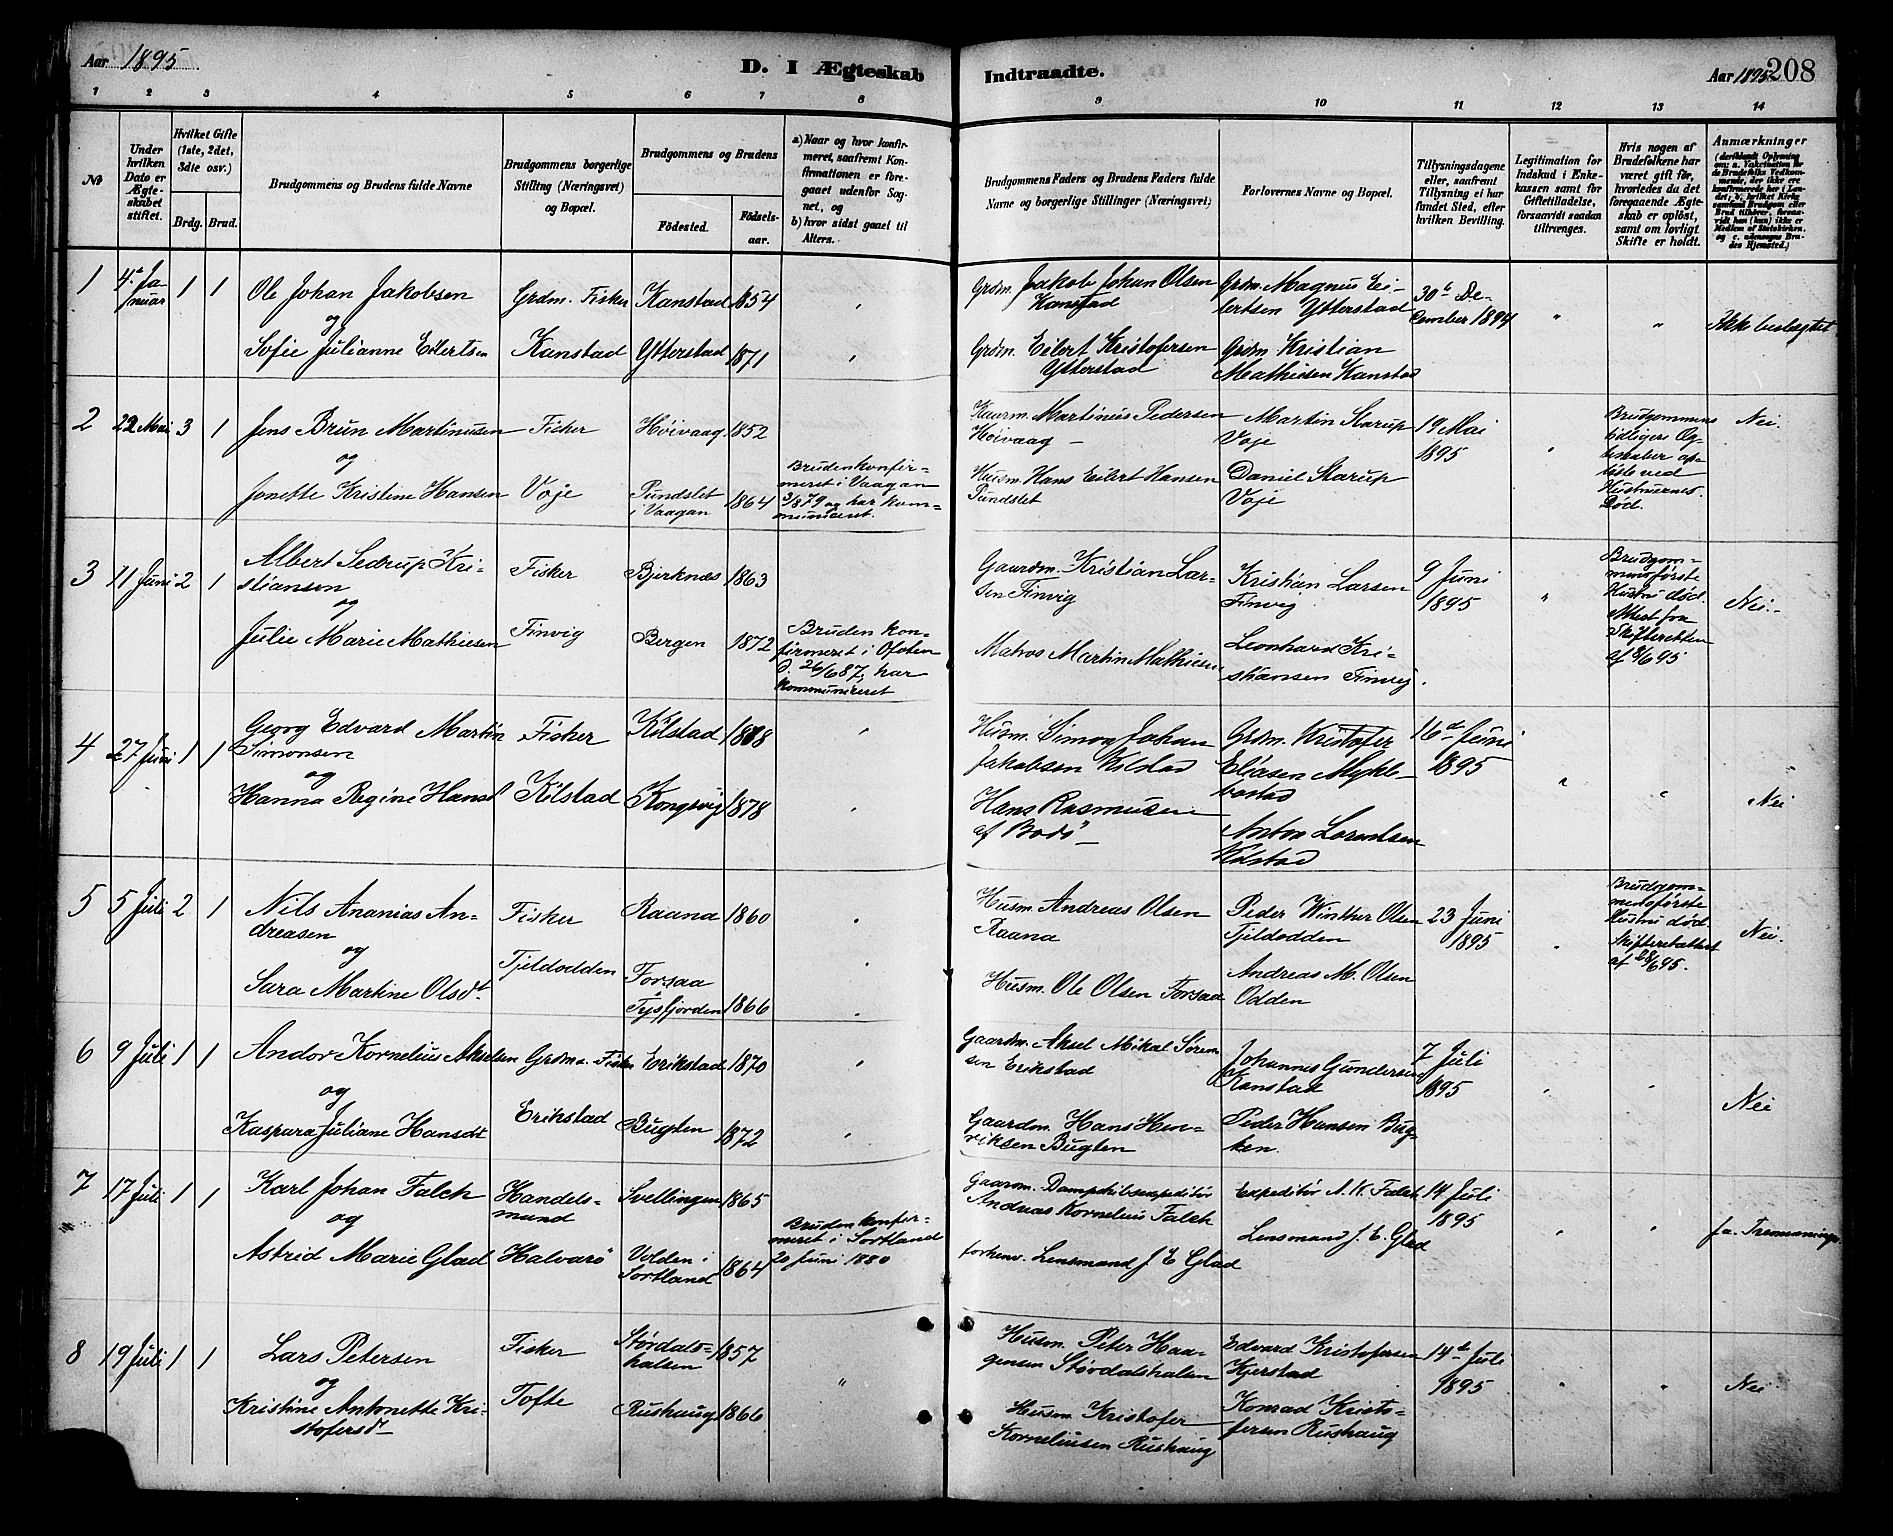 Aar 1895
D. I Ægteskab
Indtraadte.
Aar 1895
208
1 2 3 4 5 6 7 8 9 10 11 12 13 14
№
Under hvilken Dato er Ægteskabet stiftet.
Hvilket Gifte (1ste, 2det, 3die osv.)
Brdg. Brud.
Brudgommens og Brudens fulde Navne
Brudgommens borgerlige Stilling (Næringsvei) og Bopæl.
Brudgommens og Brudens
Fødested.
Fødselsaar.
a) Naar og hvor konfirmeret, saafremt Konfirmationen er foregaaet udenfor Sognet, og
b) hvor sidst gaaet til Alters.
Brudgommens Faders og Brudens Faders fulde Navne og borgerlige Stillinger (Næringsvei)
Forlovernes Navne og Bopæl.
Tillysningsdagene eller, saafremt Tillysning ei har fundet Sted, efter hvilken Bevilling.
Legitimation for Indskud i Enkekassen samt for Giftetilladelse, forsaavidt saadan tiltrænges.
Hvis nogen af Brudefolkene har været gift før, hvorledes da det foregaaende Ægteskab er opløst, samt om lovligt Skifte er holdt.
Anmærkninger
1
4de Januar
1 1
Ole Johan Jakobsen
og
Sofie Julianne Eilertsen
Grdm. Fisker
Kanstad
Kanstad 1854
Ytterstad 1871
Grdm. Jakob Johan Olsen
Kanstad
Grdm. Eilert Kristofersen
Ytterstad
Grdm. Magnus Eilertsen Ytterstad
Grdm Kristian
Mathiesen Kanstad
30te December 1894
"
"
Ikke beslægtet
2
22 Mai
3 1
Jens Brun Martinusen
og
Jonette Kristine Hansen
Fisker
Voje
Høivaag 1852
Pundslet
i Vaagan 1864
Bruden konfirmeret i Vaagan
og har kommuniceret.
Kaarm. Martinus Pedersen
Høivaag –
Husm. Hans Eilert Hansen
Pundslet
Martin Starup
Voje
Daniel Starup
Voje
19 Mai
1895
"
Brudgommens
tidligere
ved
Hustruernes
Død.
Nei.
3
11 Juni
2 1
Albert Sedrup Kristiansen
og
Julie Marie Mathiesen
Fisker
Finvig
Bjerknæs 1863
Bergen 1872
Bruden konfirmeret i Ofoten
d. 26/6 87, har
kommuniceret
Gaardm. Kristian Larsen Finvig
Matros Martin Mathiesen
Kristian Larsen
Finvig
Leonhard Kristiansen Finvig.
9 Juni
1895
"
Brudgommens første
Hustru død.
Attest fra
Skifteretten
af 8/6 95
Nei.
4
27 Juni
1 1
Georg Edvard Martin
Simonsen
og
Hanna Regine Hansd
Fisker
Kilstad
Kilstad
Kongsvig 1878
Husm. Simon Johan
Jakobsen Kilstad
Hans Rasmusen
af Bodø –
Grdm. Kristofer
Eliasen Myklebostad
Anton Lorentsen
Kilstad
16de Juni
1895
"
"
Nei
5
5 Juli
2 1
Nils Ananias Andreasen
og
Sara Martine Olsdt.
Fisker
Tjeldodden
Raana 1860
Forsaa
Tysfjorden 1866
Husm. Andreas Olsen
Raana
Husm. Ole Olsen Forsaa
Peder Winther Olsen
Tjeldodden
Andreas M. Olsen
Odden
23 Juni
1895
"
Brudgommens første
Hustru død.
Skifteretsattest
af 28/6 95.
Nei.
6
9 Juli
1 1
Andor Kornelius Akselsen
og
Kaspara Juliane Hansdt
Grdm. Fisker
Erikstad
Erikstad 1870
Bugten 1872
Gaardm. Aksel Mikal Sørensen Erikstad
Gaardm. Hans Henriksen Bugten
Johannes Gundersen
Kanstad
Peder Hansen Bugten.
7 Juli
1895
"
"
Nei
7
17 Juli
1 1
Karl Johan Falch
og
Astrid Marie Glad
Handelsmand
Halvarø
Svellingen 1865
Volden i
Sortland 1864
Bruden konfirmeret i Sortland
20 Juni 1880
Gaarm. Dampskibsexpeditør
Andreas Kornelius Falch
forhenv. Lensmand J E Glad
Expeditør A. K. Falch
Lensmand J. E. Glad
14 Juli
1895
"
"
ja.
8
19 Juli
1 1
Lars Petersen
og
Kristine Antonette Kristofersdt
Fisker
Tofte
Størdalshalsen 1857
Rushaug 1866
"
Husm. Peter Haagensen Størdalshalsen
Husm. Kristofer
Korneliusen Rushaug
Edvard Kristofersen
Kjerstad
Konrad Kristofersen Rushaug
14de Juli
1895
"
"
Nei